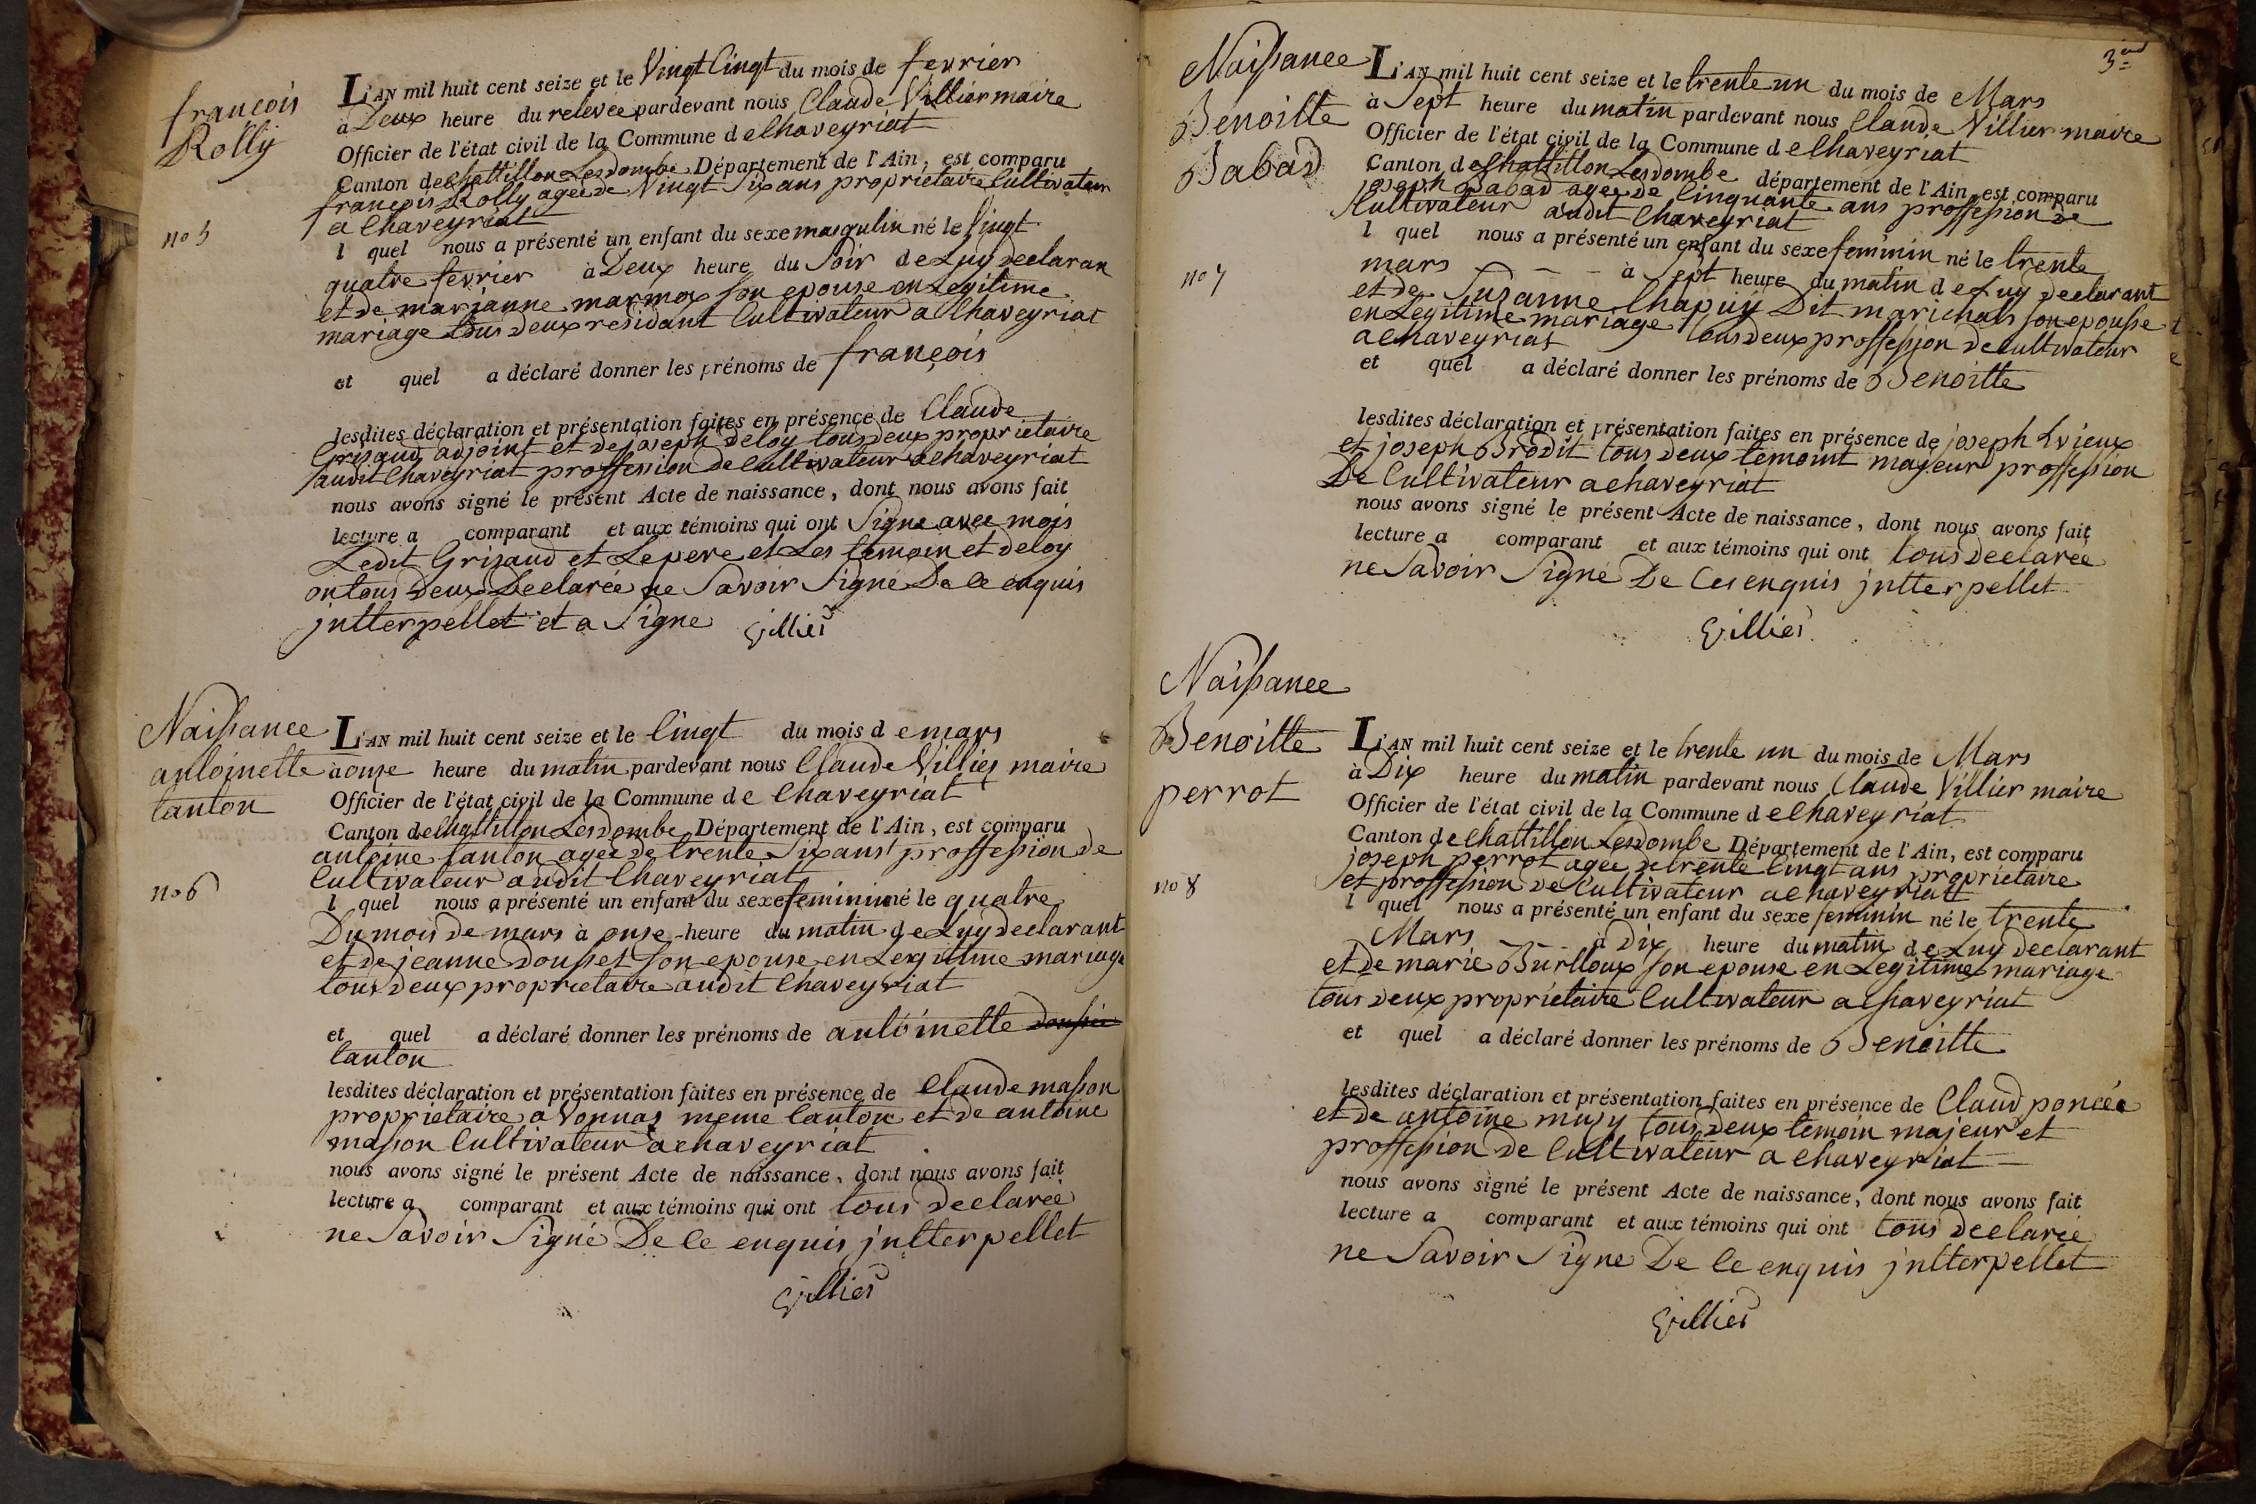 françois
Rolly
no 5
L'AN mil huit cent seize et le Vingt Cinqt du mois de fevrier
à Deux heure du relevée pardevant nous Claude Villier maire
Officier de l'état civil de la Commune de Chaveyriat
Canton de Chattillon Lesdombe Département de l'Ain, est comparu
françois Rolly ageé de Vingt Six ans proprietaire Cultivateur
a Chaveyriat
l quel nous a présenté un enfant du sexe masqulin né le Vingt
quatre fevrier à Deux heure du Soir de Luy declaran
et de marianne marmox son epouse en Legitime
mariage tous deux residant Cultivateur a Chaveyriat
et quel a déclaré donner les prénoms de françois
lesdites déclaration et présentation faites en présence de Claude
Grisaud adjoint et de joseph deloy tous deux proprietaire
audit Chaveyriat proffession de Cultivateur a Chaveyriat
nous avons signé le présent Acte de naissance, dont nous avons fait
lecture a comparant et aux témoins qui ont Signe avec mois
Ledit Grisaud et Le pere et Les temoin et deloy
on tous deux Declarée ne Savoir Signé De ce enquis
jntterpellet et a Signe Villier
Naissance
antoinette
tanton
no 6
L'AN mil huit cent seize et le Cinqt du mois d e mars
à onse heure du matin pardevant nous Claude Villier maire
Officier de l'état civil de la Commune de Chaveyriat
Canton de Chattillon Lesdombe Département de l'Ain, est comparu
antoine tanton ageé de trente Six ans proffession de
Cultivateur audit Chaveyriat
l quel nous a présenté un enfant du sexe feminin né le quatre
Du mois de mars à onse heure du matin de Luy declarant
et de jeanne Dousset son epouse en Legitime mariage
tous deux proprietaire audit Chaveyriat
et quel a déclaré donner les prénoms de antoinette
tanton
lesdites déclaration et présentation faites en présence de Claude masson
proprietaire a Vonnas meme Canton et de antoine
masson Cultivateur a chaveyriat
nous avons signé le présent Acte de naissance, dont nous avons fait
lecture a comparant et aux témoins qui ont tous declareé
ne Savoir Signé De Ce enquis jntterpellet
Villier
3
Naissance
Benoitte
Babad
no 7
L'AN mil huit cent seize et le trente un du mois de Mars
à Sept heure du matin pardevant nous Claude Villier maire
Officier de l'état civil de la Commune de Chaveyriat
Canton de Chattillon Lesdombe département de l'Ain, est comparu
joseph Babad ageé de Cinquante ans proffession de
Cultivateur audit Chaveyriat
l quel nous a présenté un enfant du sexe feminin né le trente
mars à Sept heure du matin de Luy declarant
et de Suzanne Chapuy Dit marichals son epousse
en Legitime mariage tous deux proffession de cultivateur
a Chaveyriat
et quel a déclaré donner les prénoms de Benoitte
lesdites déclaration et présentation faites en présence de joseph Lvieux
et joseph Brodit tous deux temoint majeur proffession
De Cultivateur a chaveyriat
nous avons signé le présent Acte de naissance, dont nous avons fait
lecture a comparant et aux témoins qui ont tous declareé
ne Savoir Signé De Ces enquis jntterpellet
Villier
Naissance
Benoitte
perrot
no 8
L'AN mil huit cent seize et le trente un du mois de Mars
à Dix heure du matin pardevant nous Claude Villier maire
Officier de l'état civil de la Commune de Chaveyriat
Canton de Chattillon Lesdombe Département de l'Ain, est comparu
joseph perrot ageé de trente Cinqt ans proprietaire
et proffession de Cultivateur a chaveyriatt
l quel nous a présenté un enfant du sexe feminin né le trente
Mars à Dix heure du matin de Luy declarant
et de marie Burlloux son epouse en Legitime mariage
tous deux proprietaire Cultivateur a Chaveyriat
et quel a déclaré donner les prénoms de Benoitte
lesdites déclaration et présentation faites en présence de Claud poncée
et de antoine muzy tous deux temoin majeur et
proffession de Cultivateur a Chaveyriat
nous avons signé le présent Acte de naissance, dont nous avons fait
lecture a comparant et aux témoins qui ont tous declarée
ne Savoir Signe De Ce enquis jntterpellet
Villier